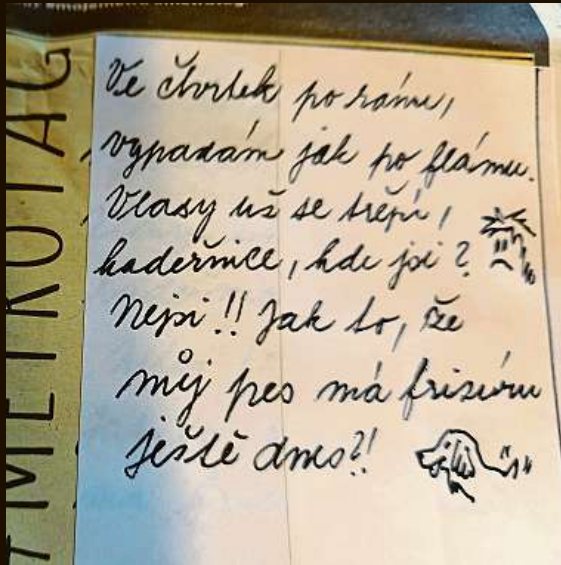 #METROTAG
Ve čtvrtek po ránu,
vypadám jak po flámu.
Vlasy už se třepí,
kadeřnice, kde jsi?
Nejsi!! Jak to, že
můj pes má frizúru
ještě dnes?!